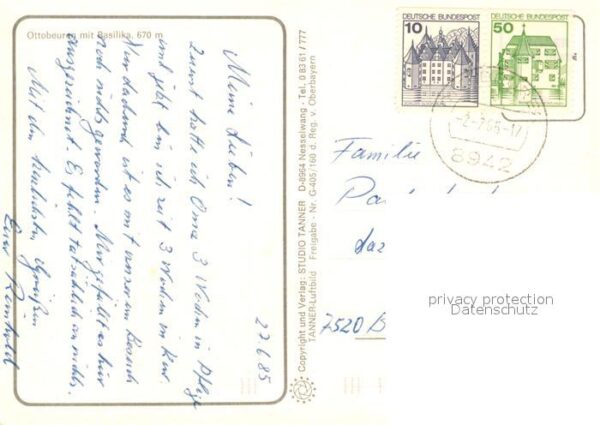 Ottobeuren mit Basilika, 670 m
27.6.85
Meine Lieben!
Zuerst hatte ich Oma 3 Wochen in Pflege
und jetzt bin ich seit 3 Wochen in Kur.
ist es mit unserem Besuch
noch nichts geworden. Mir gefällt es hier
ausgezeichnet. Es fehlt tatsächlich an nichts.
Mit den herzlichsten Grüßen
Euer Reinhold
Copyright und Verlag: STUDIO TANNER D-8964 Nesselwang - Tel. 0 83 61 / 777
TANNER-Luftbild Freigabe - Nr. G-405/168 d. Reg. v. Oberbayern
DEUTSCHE BUNDESPOST
10
DEUTSCHE BUNDESPOST
50
8942
Familie
7520 B
privacy protection
Datenschutz